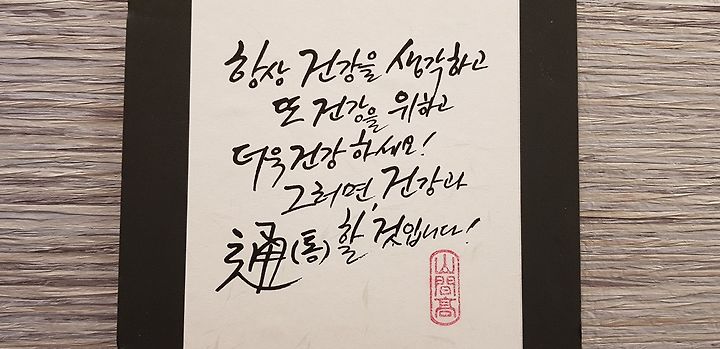 항상 건강을 생각하고
또 건강을 위하고
더욱 건강하세요!
그러면, 건강과
通(통)할 것입니다!
山間高